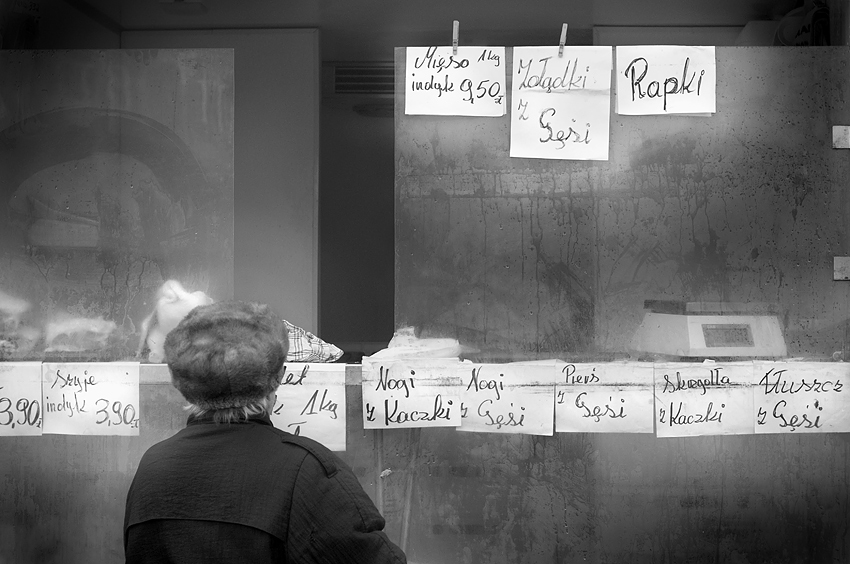 Mięso 1kg
indyk 9,50 zł
Żołądki
z
Gęśi
Rapki
3,90
Szyje
indyk 3,90
1kg
Nogi
z Kaczki
Nogi
z Gęśi
Pierś
z Gęśi
z Kaczki
Tłuszcz
z Gęśi